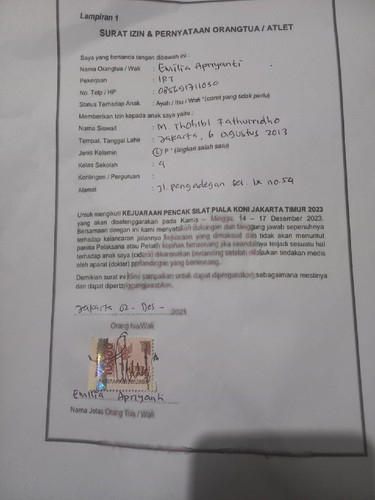 Lampiran 1
SURAT IZIN & PERNYATAAN ORANGTUA / ATLET
Saya yang bertanda tangan dibawah ini :
Nama Orangtua / Wali : Emilia Apriyanti
Pekerjaan : IRT
No. Telp / HP : 085691711030
Status Terhadap Anak : Ayah / Ibu / Wali *(coret yang tidak perlu)
Memberikan izin kepada anak saya yaitu :
Nama Siswa/i : M. Thohibi Fathurridho
Tempat, Tanggal Lahir : Jakarta, 6 Agustus 2013
Jenis Kelamin : L/ P * (lingkari salah satu)
Kelas Sekolah : 4
Kontingen / Perguruan :
Alamat : Jl. Pengadegan Sel. IX no.54
Untuk mengikuti KEJUARAAN PENCAK SILAT PIALA KONI JAKARTA TIMUR 2023
yang akan diselenggarakan pada Kamis – Minggu, 14 – 17 Desember 2023.
Bersamaan dengan ini kami menyatakan dukungan dan tanggung jawab sepenuhnya
terhadap kelancaran jalannya kejuaraan yang dimaksud dan tidak akan menuntut
panitia Pelaksana atau Pihak lain jika seandainya terjadi sesuatu hal
terhadap anak saya setelah dilakukan tindakan medis
oleh aparat (dokter) pertandingan yang berwenang.
Demikian surat ini kami sampaikan untuk dapat dipergunakan sebagaimana mestinya
dan dapat dipertanggungjawabkan.
Jakarta 02 - Des - 2023
Orang tua/Wali
10000
Emilia Apriyanti
Nama Jelas Orang Tua / Wali